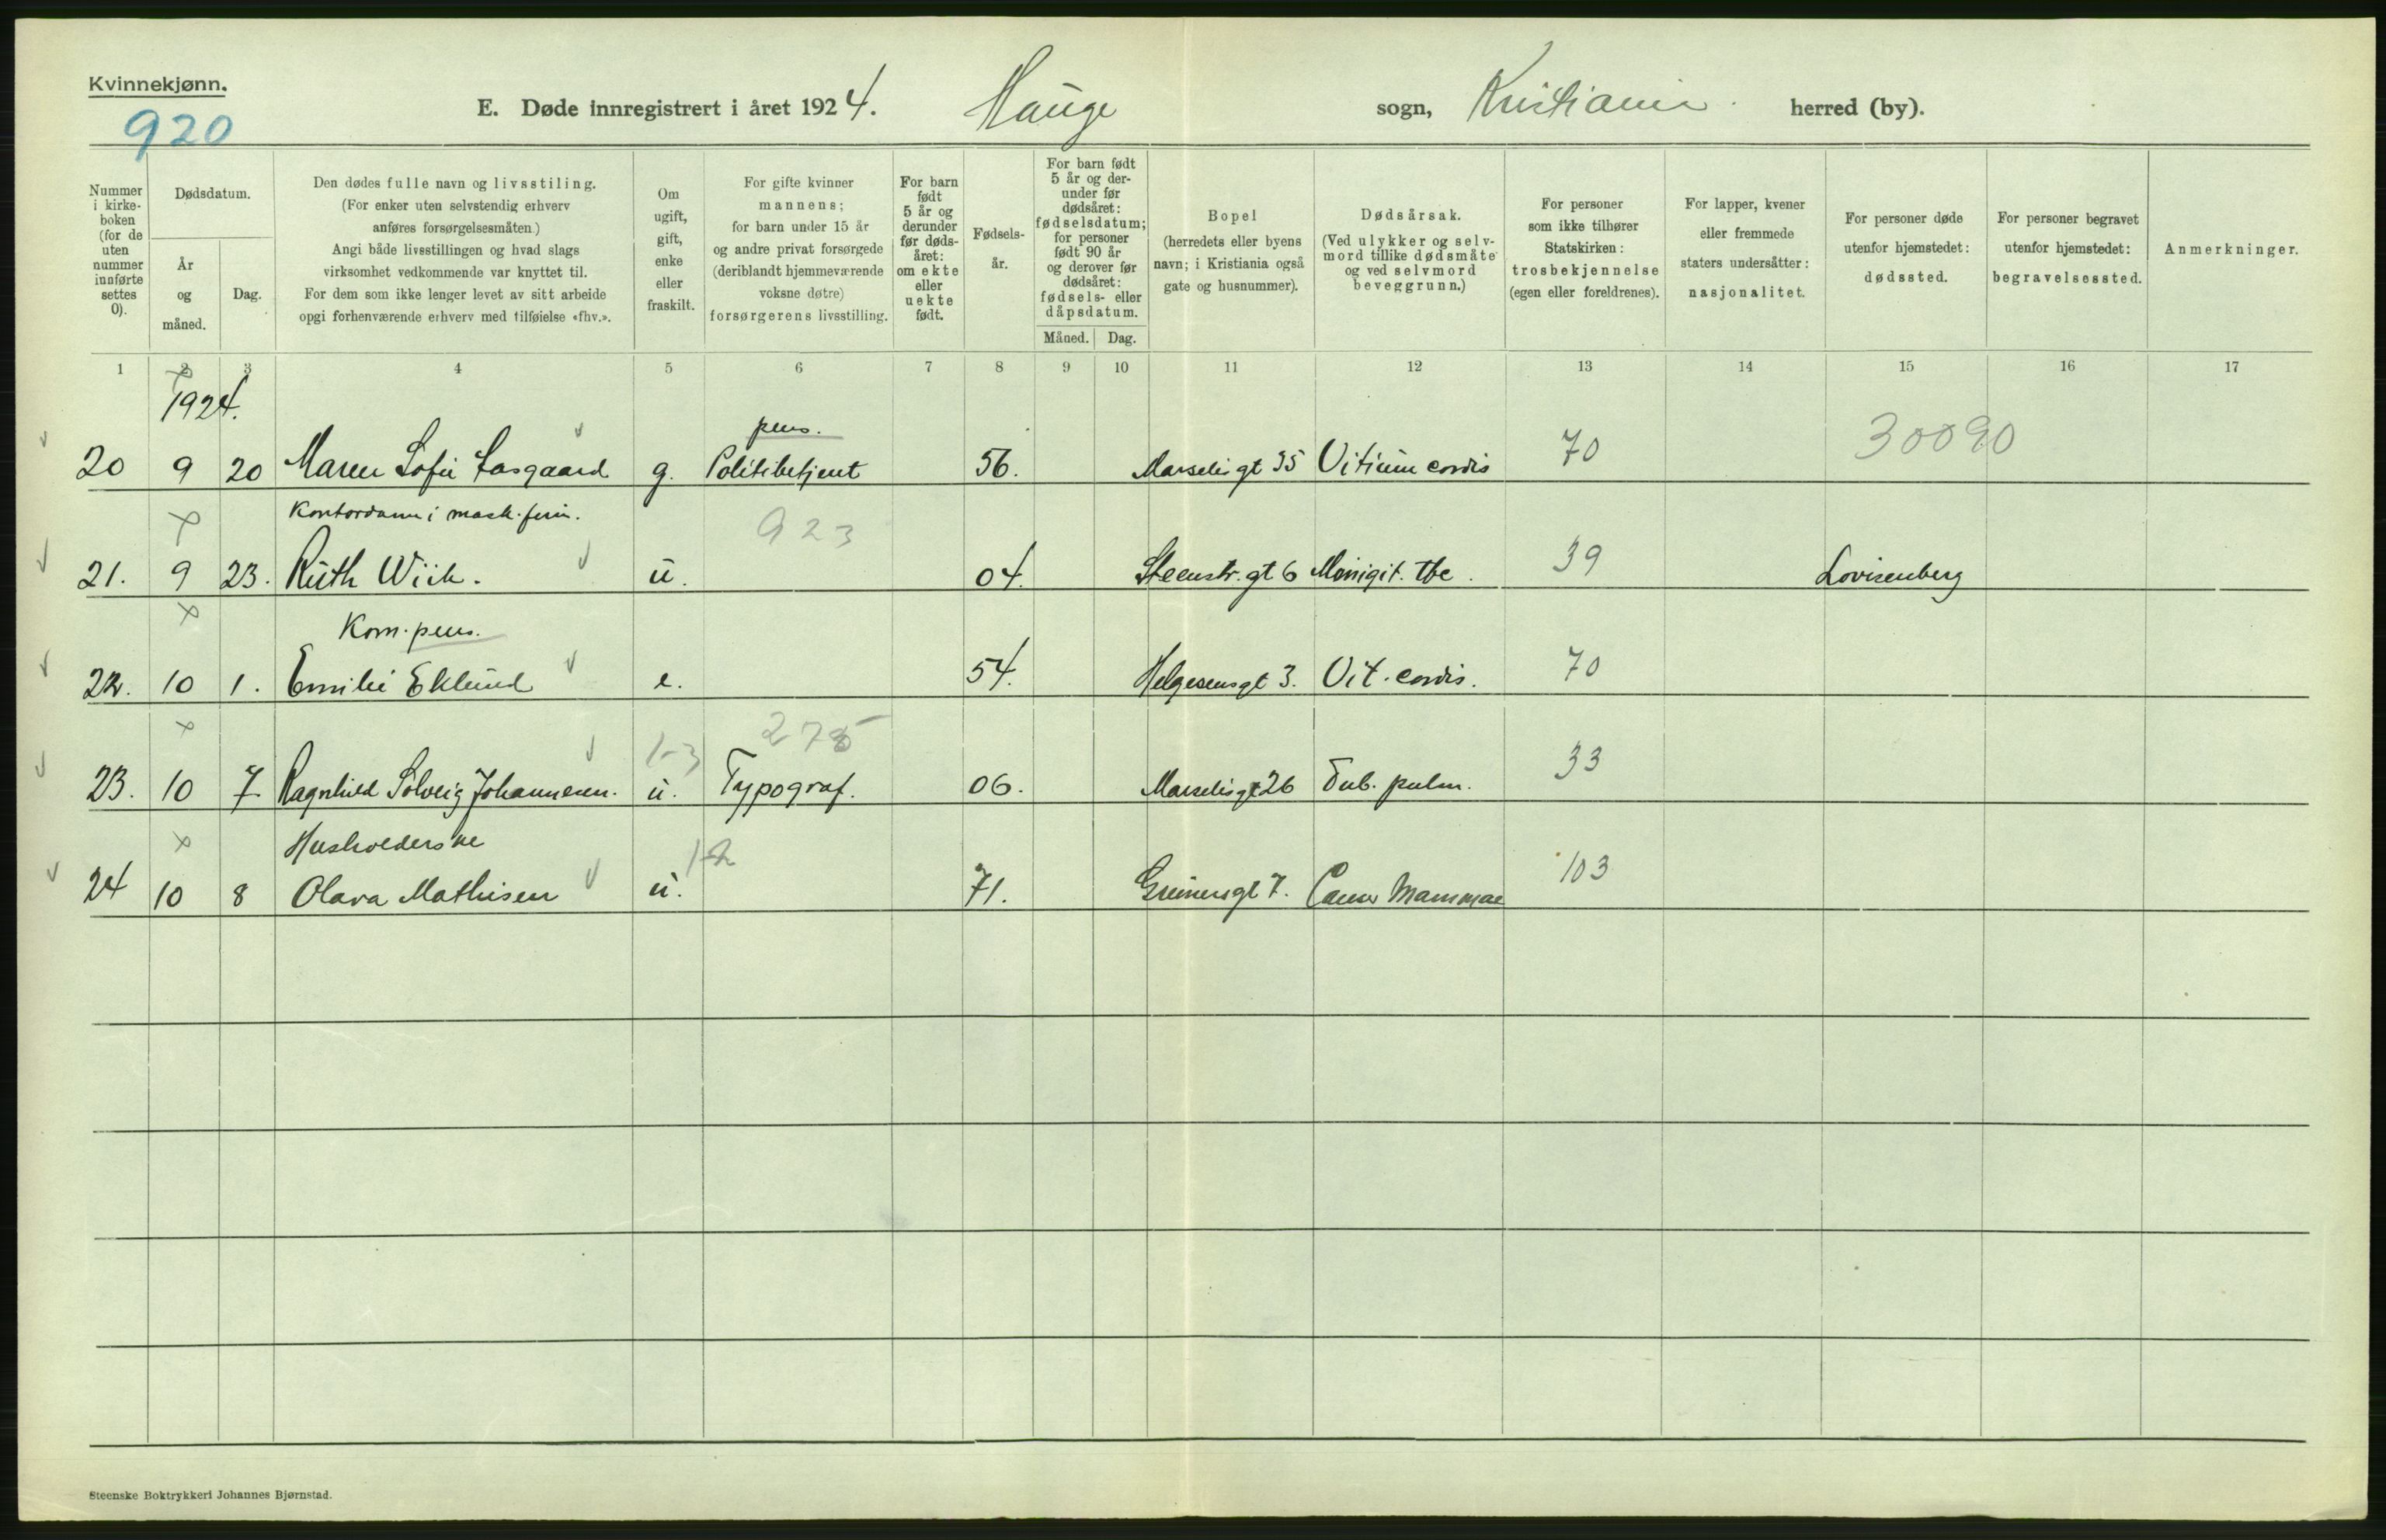 Kvinnekjønn.
920
E. Døde innregistrert i året 1924. Hauge sogn, Kristiania herred (by).
Nummer i kirke-boken (for de uten nummer innførte settes 0).
Dødsdatum.
År og måned.
Dag.
Den dødes fulle navn og livsstiling.
(For enker uten selvstendig erhverv
anføres forsørgelsesmåten)
Angi både livsstillingen og hvad slags
virksomhet vedkommende var knyttet til.
For dem som ikke lenger levet av sitt arbeide
opgi forhenværende erhverv med tilføielse «fhv.».
Om ugift, gift, enke eller fraskilt.
For gifte kvinner
mannens;
for barn under 15 år
og andre privat forsørgede
(deriblandt hjemmeværende
voksne døtre)
forsørgerens livsstilling.
For barn født 5 år og derunder før døds-året: om ekte eller uekte født.
Fødsels-år.
For barn født 5 år og der-under før dødsåret: fødselsdatum; for personer født 90 år og derover før dødsåret: fødsels- eller dåpsdatum.
Måned. Dag.
Bopel
(herredets eller byens
navn; i Kristiania også
gate og husnummer).
Dødsårsak.
(Ved ulykker og selv-
mord tillike dødsmåte
og ved selvmord
beveggrunn.)
For personer
som ikke tilhører
Statskirken:
trosbekjennelse
(egen eller foreldrenes).
For lapper, kvener
eller fremmede
staters undersåtter:
nasjonalitet.
For personer døde
utenfor hjemstedet:
dødssted.
For personer begravet
utenfor hjemstedet:
begravelsessted.
Anmerkninger.
1 2 3 4 5 6 7 8 9 10 11 12 13 14 15 16 17
1924.
pens.
20 9 20 Maren Sofie Aasgaard g. Politibetjent 56. Marselisgt 35 Vitium cordis 70 30090
Kontordame i mask.firm.
923
21. 9 23. Ruth Wiik. u. 04. Steenstr. gt 6 Menigit. tbc. 39 Lovisenberg
Kom. pens.
22. 10 1. Emilie Eklund e. 54. Helgesensgt 3. Vit. cordis. 70
1-3 275
23. 10 7. Ragnhild Solveig Johannesen. u. Typograf. 06. Marselisgt 26 Tub. pulm. 33
Husholderske
1-2
24 10 8 Olava Mathisen u. 71. Grünersgt 7. Cancer Mammae 103
Steenske Boktrykkeri Johannes Bjørnstad.